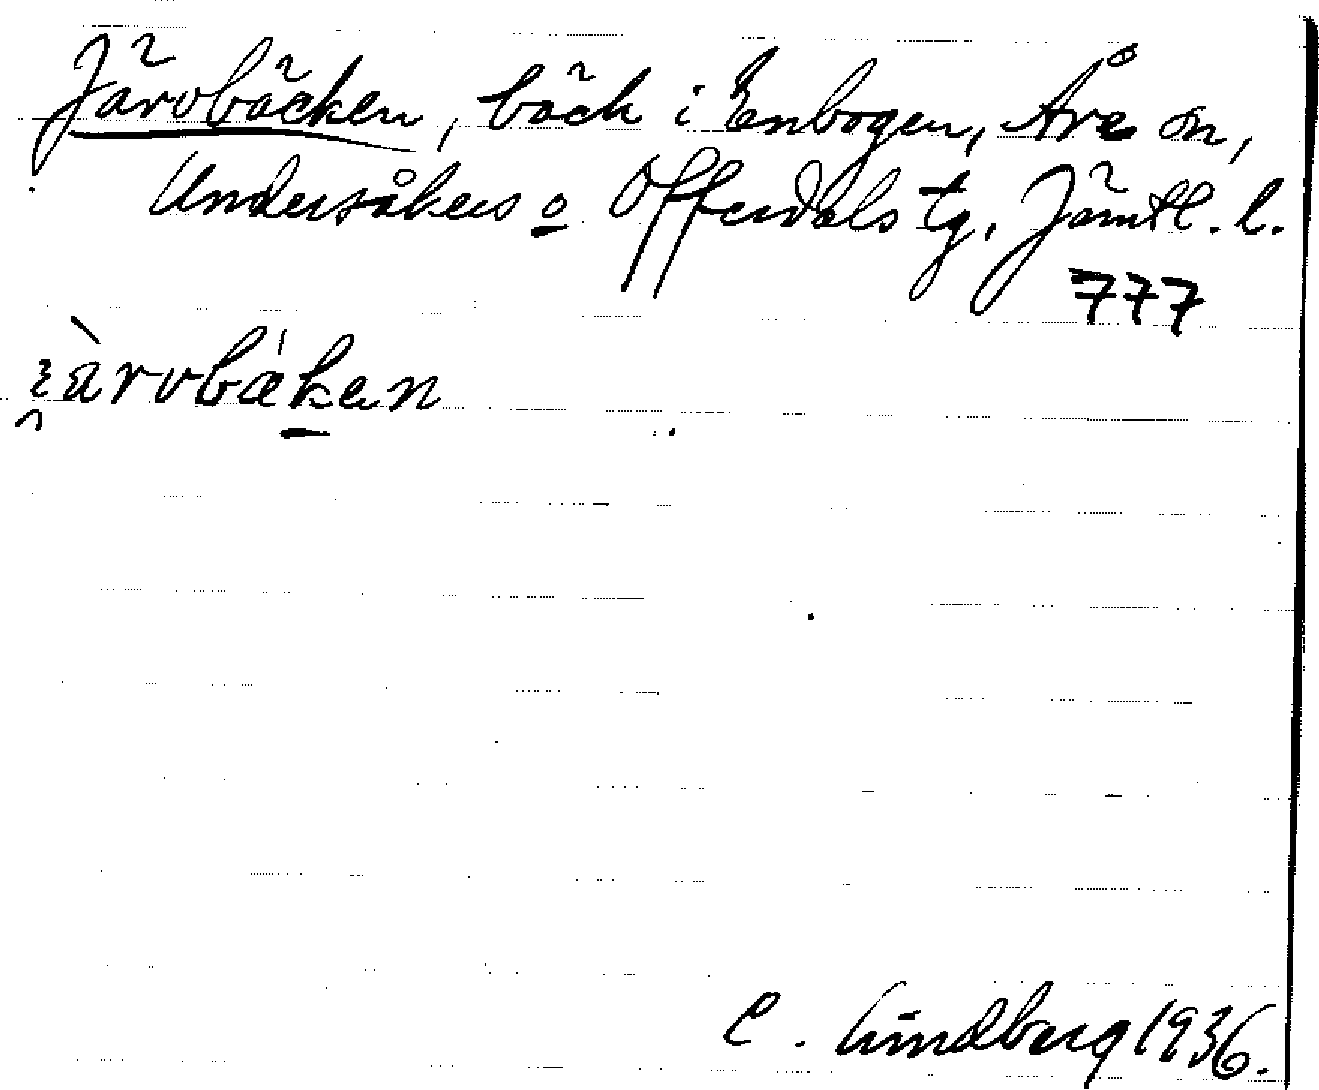 Järvbäcken, bäck i Enbogen, Åre sn,
Undersåkers o Offerdals tg, Jämtl. l.
777
C. Lindberg 1936.